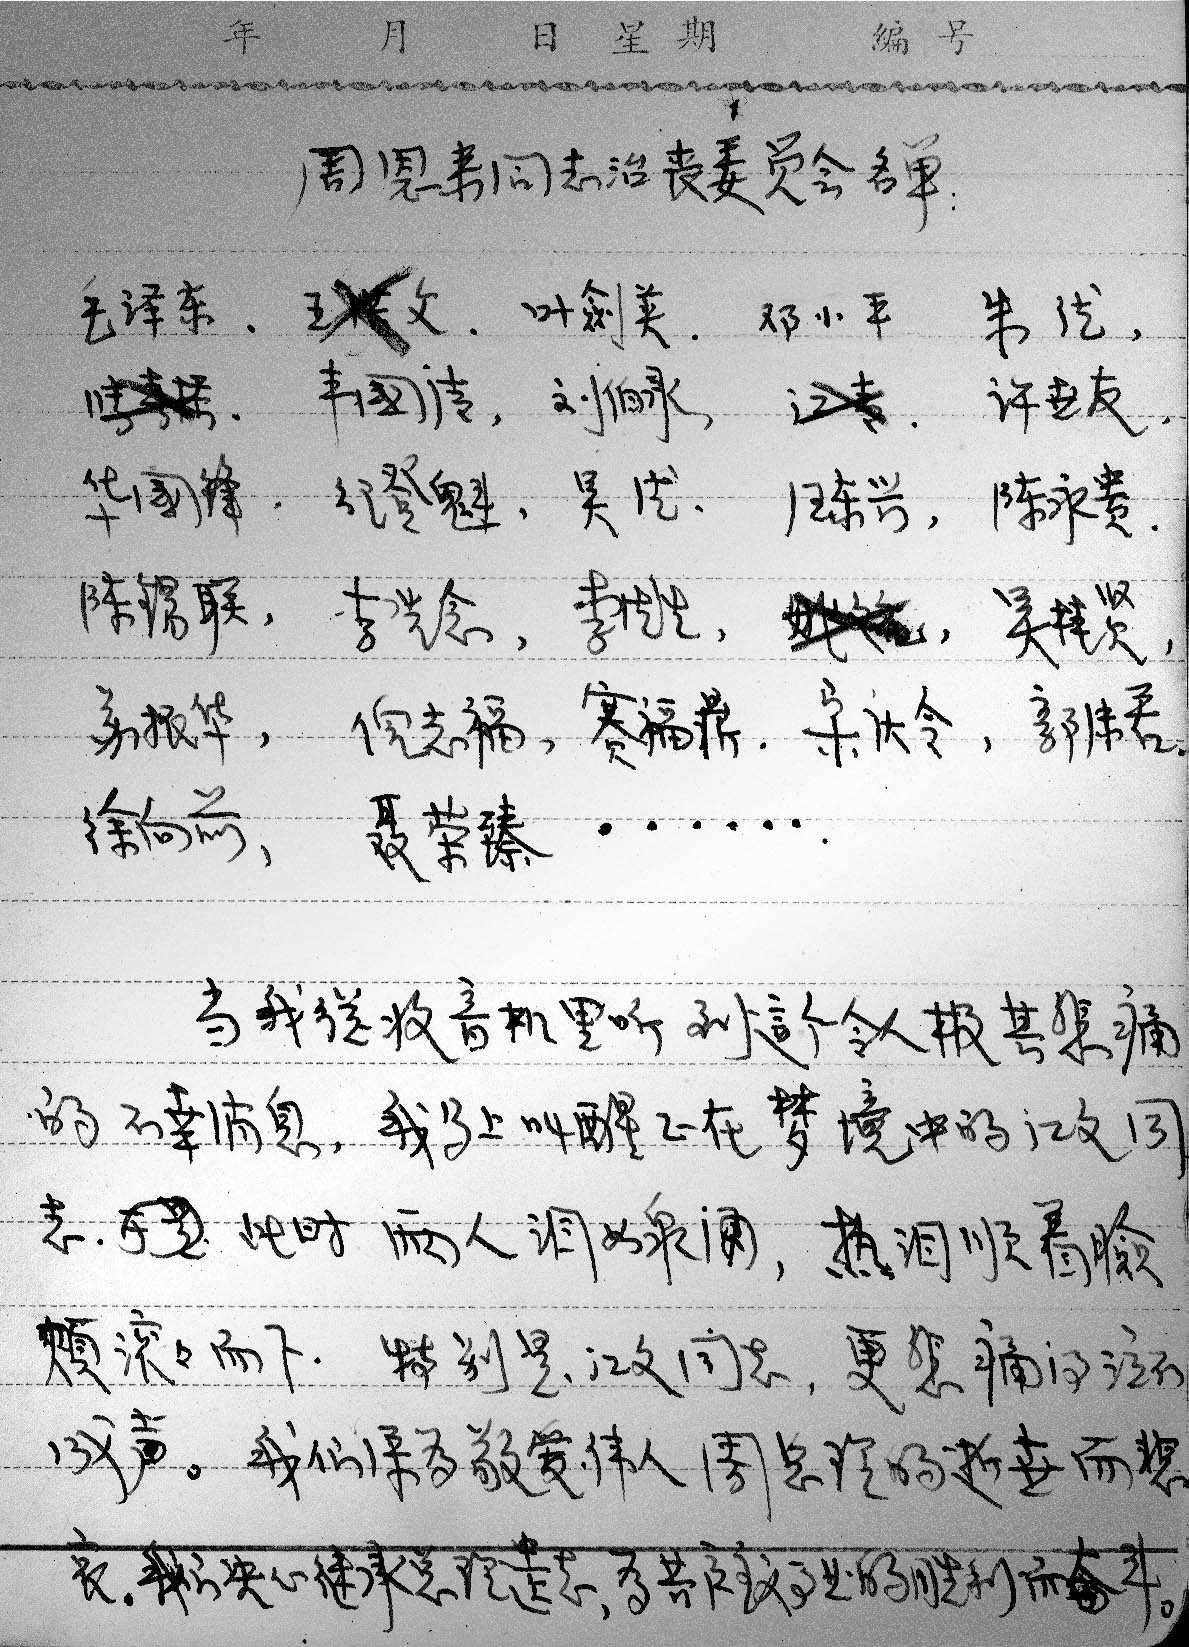 年 月 日 星期 编号
周恩来同志治丧委员会名单:
毛泽东. 王洪文. 叶剑英. 邓小平 朱德,
张春桥. 韦国清, 刘伯承, 江青. 许世友,
华国锋. 纪登魁, 吴德. 汪东兴, 陈永贵.
陈锡联, 李先念, 李德生, 姚文元, 吴桂贤,
苏振华, 倪志福, 赛福鼎. 宋庆令, 郭沫若.
徐向前, 聂荣臻 ・・・・・・.
当我从收音机里听到這个令人极其悲痛
的不幸消息, 我马上叫醒正在梦境中的江文同
志. 于是. 此时 两人泪如泉涌, 热泪顺着脸
颊滚々而下. 特别是江文同志, 更悲痛得泣不
成声。我们深为敬爱伟人周总理的逝世而悲
哀. 我们决心继承总理遗志, 为共产主义事业的胜利而奋斗。